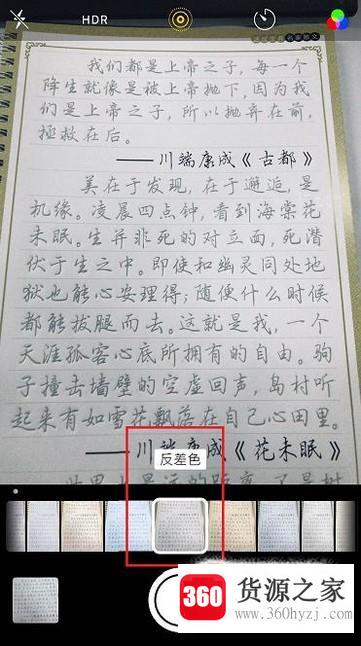 HDR
名家散文
我们都是上帝之子，每一个
降生就像是被上帝抛下，因为我
们是上帝之子，所以抛弃在前，
拯救在后。
——川端康成《古都》
美在于发现，在于邂逅，是
机缘。凌晨四点钟，看到海棠花
未眠。生并非死的对立面，死潜
伏于生之中。即使和幽灵同处地
狱也能心安理得；随便什么时候
都能拔腿而去。这就是我，一个
天涯孤客心底所拥有的自由。驹
子撞击墙壁的空虚回声，岛村听
起来有如雪花飘落在自己心田里。
——川端康成《花未眠》
反差色
360 货源之家
www.360hyzj.com